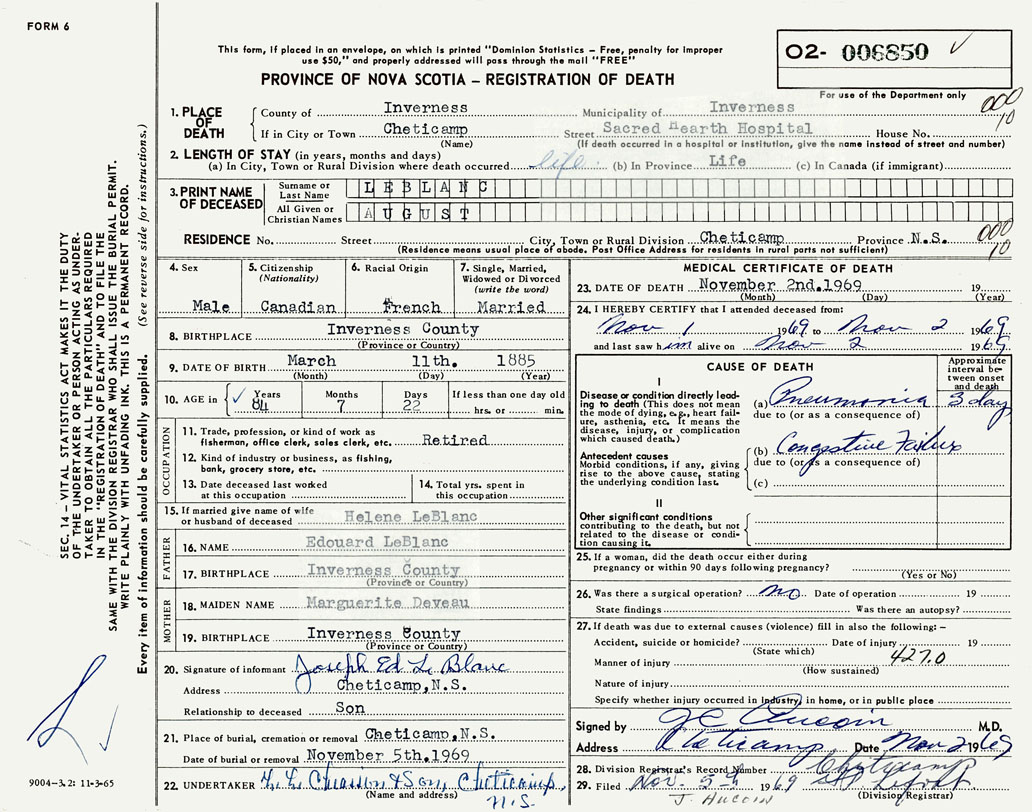 FORM 6
This form, if placed in an envelope, on which is printed "Dominion Statistics – Free, penalty for improper
use $50," and properly addressed will pass through the mail "FREE"
PROVINCE OF NOVA SCOTIA – REGISTRATION OF DEATH
02- 006850 ✓
For use of the Department only
000
10
1. PLACE OF DEATH
County of Inverness Municipality of Inverness
If in City or Town Cheticamp Street Sacred Hearth Hospital House No.
(Name) (If death occurred in a hospital or institution, give the name instead of street and number)
2. LENGTH OF STAY (in years, months and days)
(a) In City, Town or Rural Division where death occurred life (b) In Province Life (c) In Canada (if immigrant)
3. PRINT NAME OF DECEASED
Surname or Last Name LEBLANC
All Given or Christian Names AUGUST
RESIDENCE No. Street City, Town or Rural Division Cheticamp Province N.S.
(Residence means usual place of abode. Post Office Address for residents in rural parts not sufficient)
000
10
4. Sex
Male
5. Citizenship
(Nationality)
Canadian
6. Racial Origin
French
7. Single, Married,
Widowed or Divorced
(write the word)
Married
8. BIRTHPLACE Inverness County
(Province or Country)
9. DATE OF BIRTH March 11th. 1885
(Month) (Day) (Year)
10. AGE in ✓ Years 84 Months 7 Days 22 If less than one day old
hrs. or min.
OCCUPATION
11. Trade, profession, or kind of work as
fisherman, office clerk, sales clerk, etc. Retired
12. Kind of industry or business, as fishing,
bank, grocery store, etc.
13. Date deceased last worked
at this occupation
14. Total yrs. spent in
this occupation
15. If married give name of wife
or husband of deceased Helene LeBlanc
FATHER
16. NAME Edouard LeBlanc
17. BIRTHPLACE Inverness County
(Province or Country)
MOTHER
18. MAIDEN NAME Marguerite Deveau
19. BIRTHPLACE Inverness County
(Province or Country)
20. Signature of informant Joseph Ed Le Blanc
Address Cheticamp,N.S.
Relationship to deceased Son
21. Place of burial, cremation or removal Cheticamp,N.S.
Date of burial or removal November 5th.1969
22. UNDERTAKER Chiasson & Son, Cheticamp,
(Name and address) N.S.
MEDICAL CERTIFICATE OF DEATH
23. DATE OF DEATH November 2nd.1969 19
(Month) (Day) (Year)
24. I HEREBY CERTIFY that I attended deceased from:
Nov 1 1969 to Nov 2 1969
and last saw him alive on Nov 2 1969
CAUSE OF DEATH
Approximate
interval be-
tween onset
and death
I
Disease or condition directly lead-
ing to death (This does not mean
the mode of dying, e.g., heart fail-
ure, asthenia, etc. It means the
disease, injury, or complication
which caused death.)
(a) Pneumonia 3 day
due to (or as a consequence of)
Antecedent causes
Morbid conditions, if any, giving
rise to the above cause, stating
the underlying condition last.
(b) Congestive Failure
due to (or as a consequence of)
(c)
II
Other significant conditions
contributing to the death, but not
related to the disease or condi-
tion causing it.
25. If a woman, did the death occur either during
pregnancy or within 90 days following pregnancy?
(Yes or No)
26. Was there a surgical operation? no Date of operation 19
State findings Was there an autopsy?
27. If death was due to external causes (violence) fill in also the following: –
Accident, suicide or homicide? Date of injury 19
(State which)
427.0
Manner of injury
(How sustained)
Nature of injury
Specify whether injury occurred in industry, in home, or in public place
Signed by J C Aucoin M.D.
Address Cheticamp Date Nov 2 1969
28. Division Registrar's Record Number Cheticamp
29. Filed Nov. 5-9 1969
J. Aucoin (Division Registrar)
SEC. 14 – VITAL STATISTICS ACT MAKES IT THE DUTY
OF THE UNDERTAKER OR PERSON ACTING AS UNDER-
TAKER TO OBTAIN ALL THE PARTICULARS REQUIRED
IN THE "REGISTRATION OF DEATH" AND TO FILE THE
SAME WITH THE DIVISION REGISTRAR WHO SHALL ISSUE THE BURIAL PERMIT.
WRITE PLAINLY WITH UNFADING INK. THIS IS A PERMANENT RECORD.
Every item of information should be carefully supplied. (See reverse side for instructions.)
9004-3.2: 11-3-65